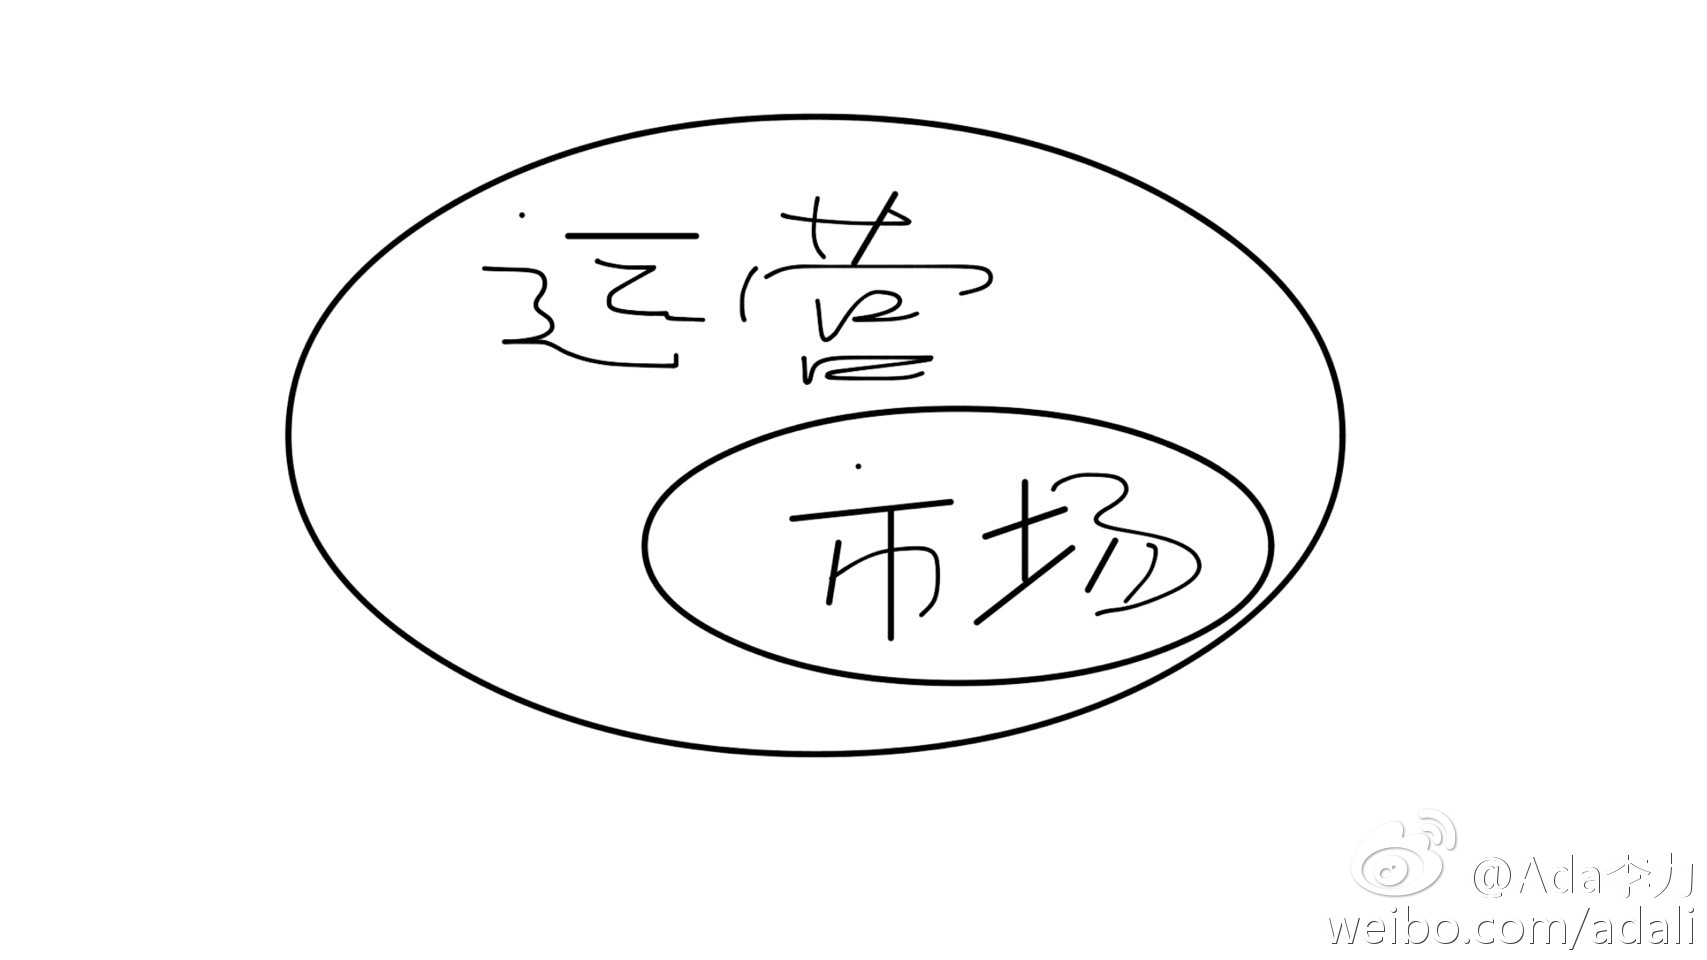 运营
市场
@Ada李力
weibo.com/adali